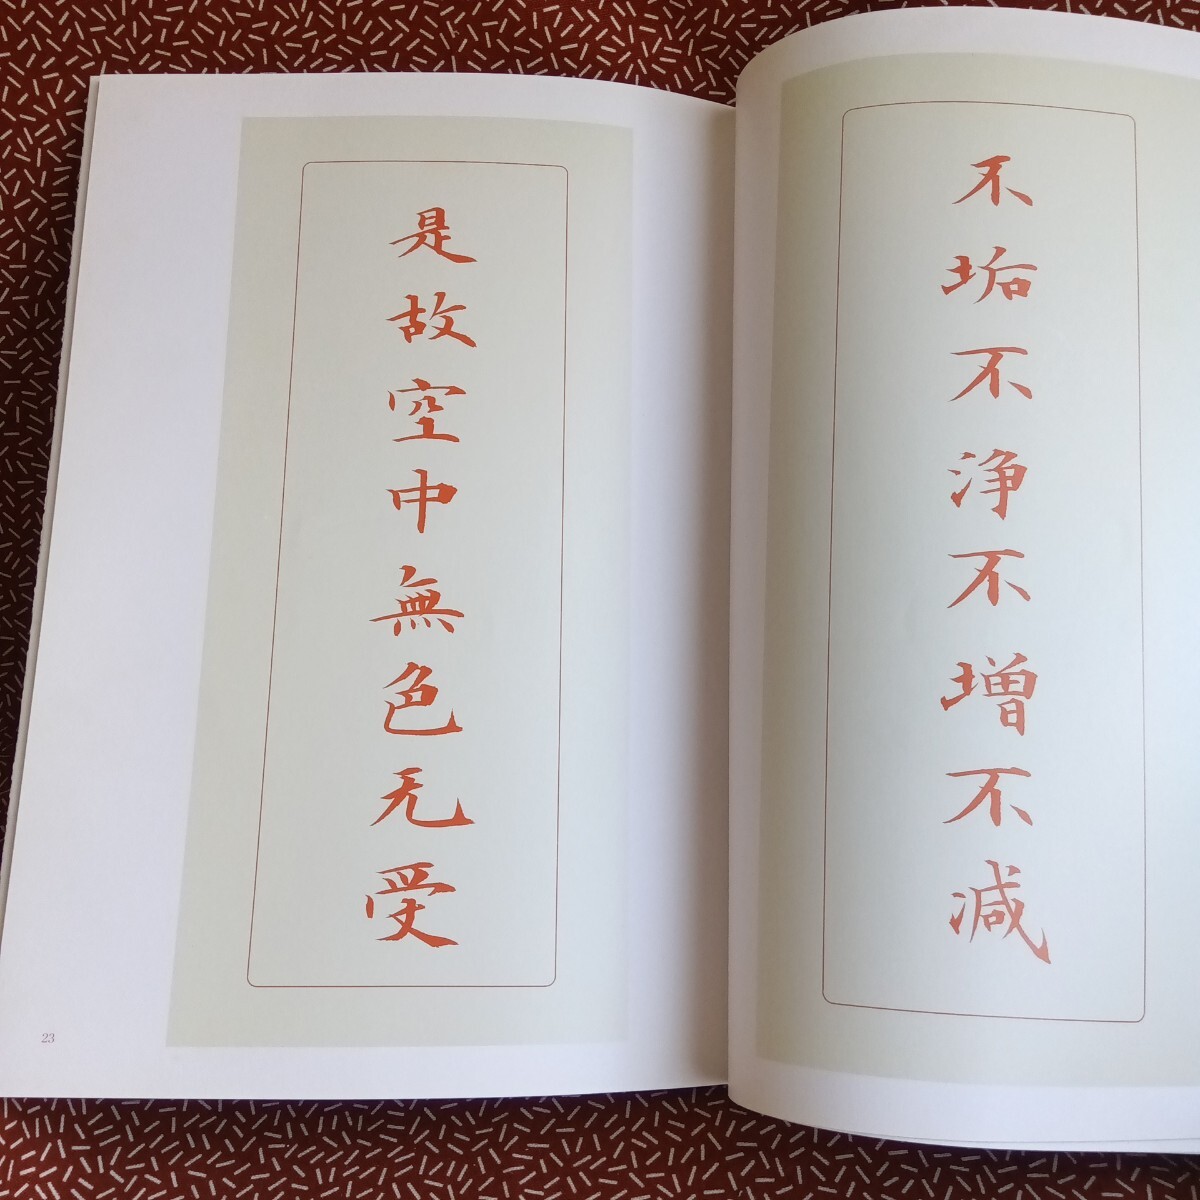 不垢不浄不増不減
是故空中無色无受
23